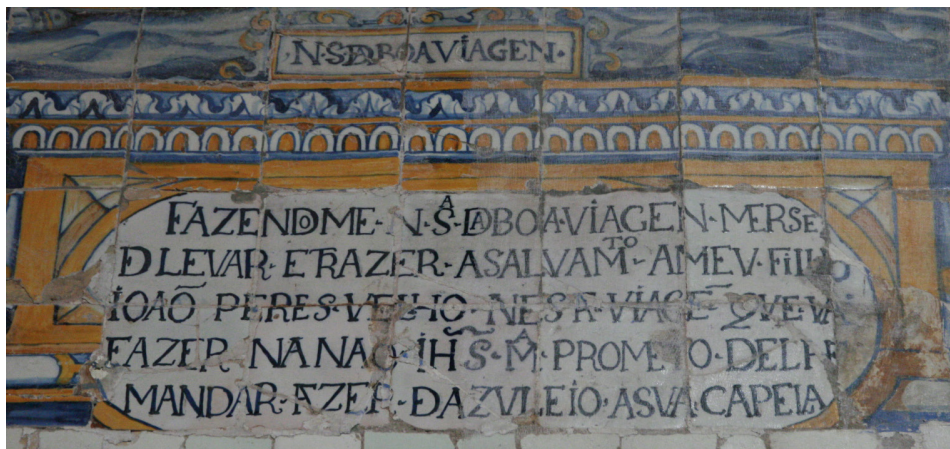 ·N·S·DABOAVIAGEN·
FAZENDOME·N·Sᴬ·DABOA·VIAGEN·MERSE
D LEVAR·ETRAZER·ASALVAMᵀᴼ·AMEV·FILHO
IOAÕ PERES·VELHO·NESA·VIAGẼ·QVE·VAI
FAZER NANAO·IHS·Mᴬ·PROMETO·DELHE
MANDAR·FAZER·DAZVLEIO·ASVA·CAPEIA